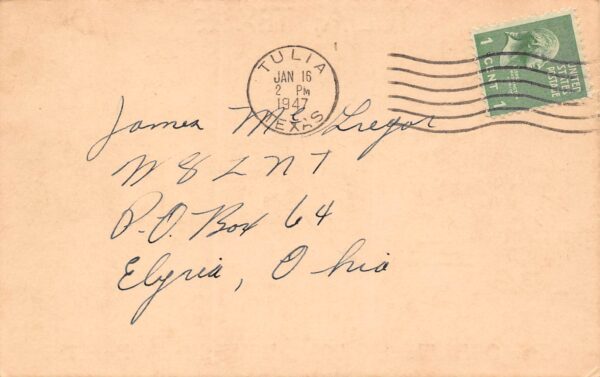 TULIA
JAN 16
2 PM
1947
TEXAS
1 CENT 1
UNITED STATES POSTAGE
James Mc Gregor
W8LNT
P.O. Box 64
Elyria, Ohio